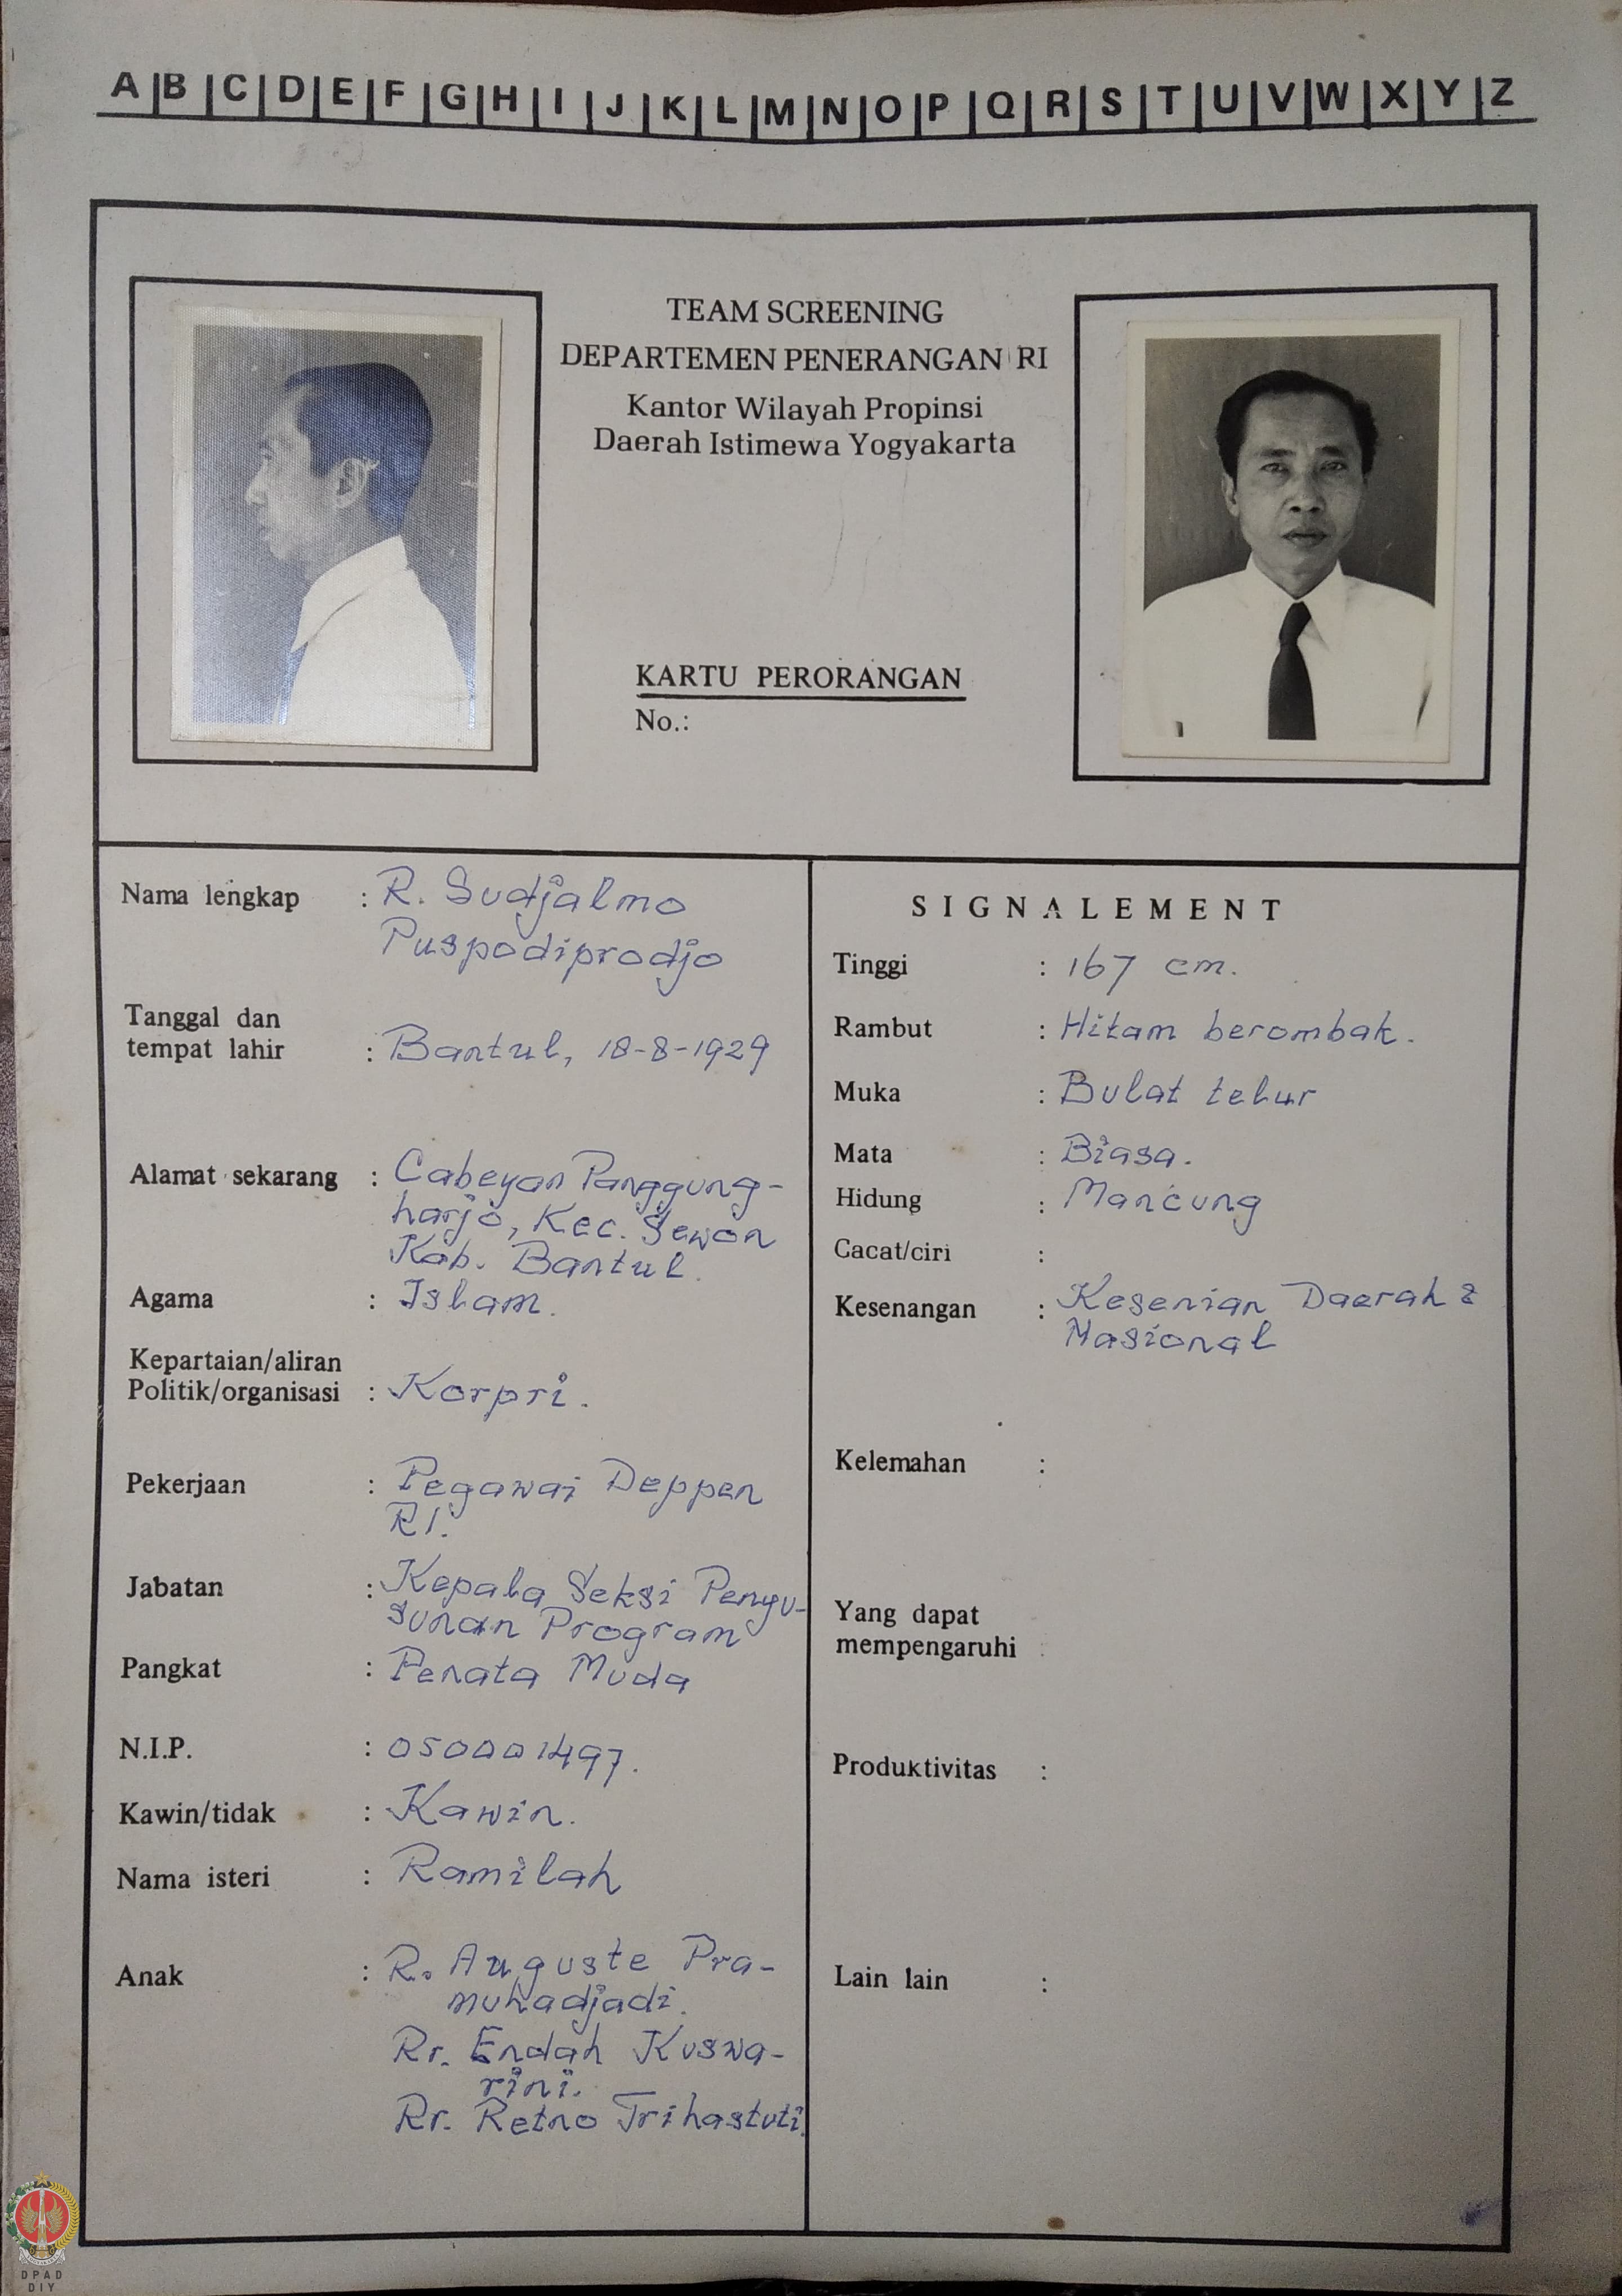 A B C D E F G H I J K L M N O P Q R S T U V W X Y Z
TEAM SCREENING
DEPARTEMEN PENERANGAN RI
Kantor Wilayah Propinsi
Daerah Istimewa Yogyakarta
KARTU PERORANGAN
No.:
Nama lengkap : R. Sudjalmo
Puspodiprodjo
Tanggal dan
tempat lahir : Bantul, 18-8-1929
Alamat sekarang : Cabeyan Panggung-
harjo, Kec. Sewon
Kab. Bantul.
Agama : Islam.
Kepartaian/aliran
Politik/organisasi : Korpri.
Pekerjaan : Pegawai Deppen
RI.
Jabatan : Kepala Seksi Penyu-
sunan Program
Pangkat : Penata Muda
N.I.P. : 050001497.
Kawin/tidak : Kawin.
Nama isteri : Ramilah
Anak : R. Auguste Pra-
muhadjadi.
Rr. Endah Kuswa-
rini.
Rr. Retno Trihastuti.
SIGNALEMENT
Tinggi : 167 cm.
Rambut : Hitam berombak.
Muka : Bulat telur
Mata : Biasa.
Hidung : Mancung
Cacat/ciri :
Kesenangan : Kesenian Daerah &
Nasional
Kelemahan :
Yang dapat
mempengaruhi :
Produktivitas :
Lain lain :
DPAD
DIY